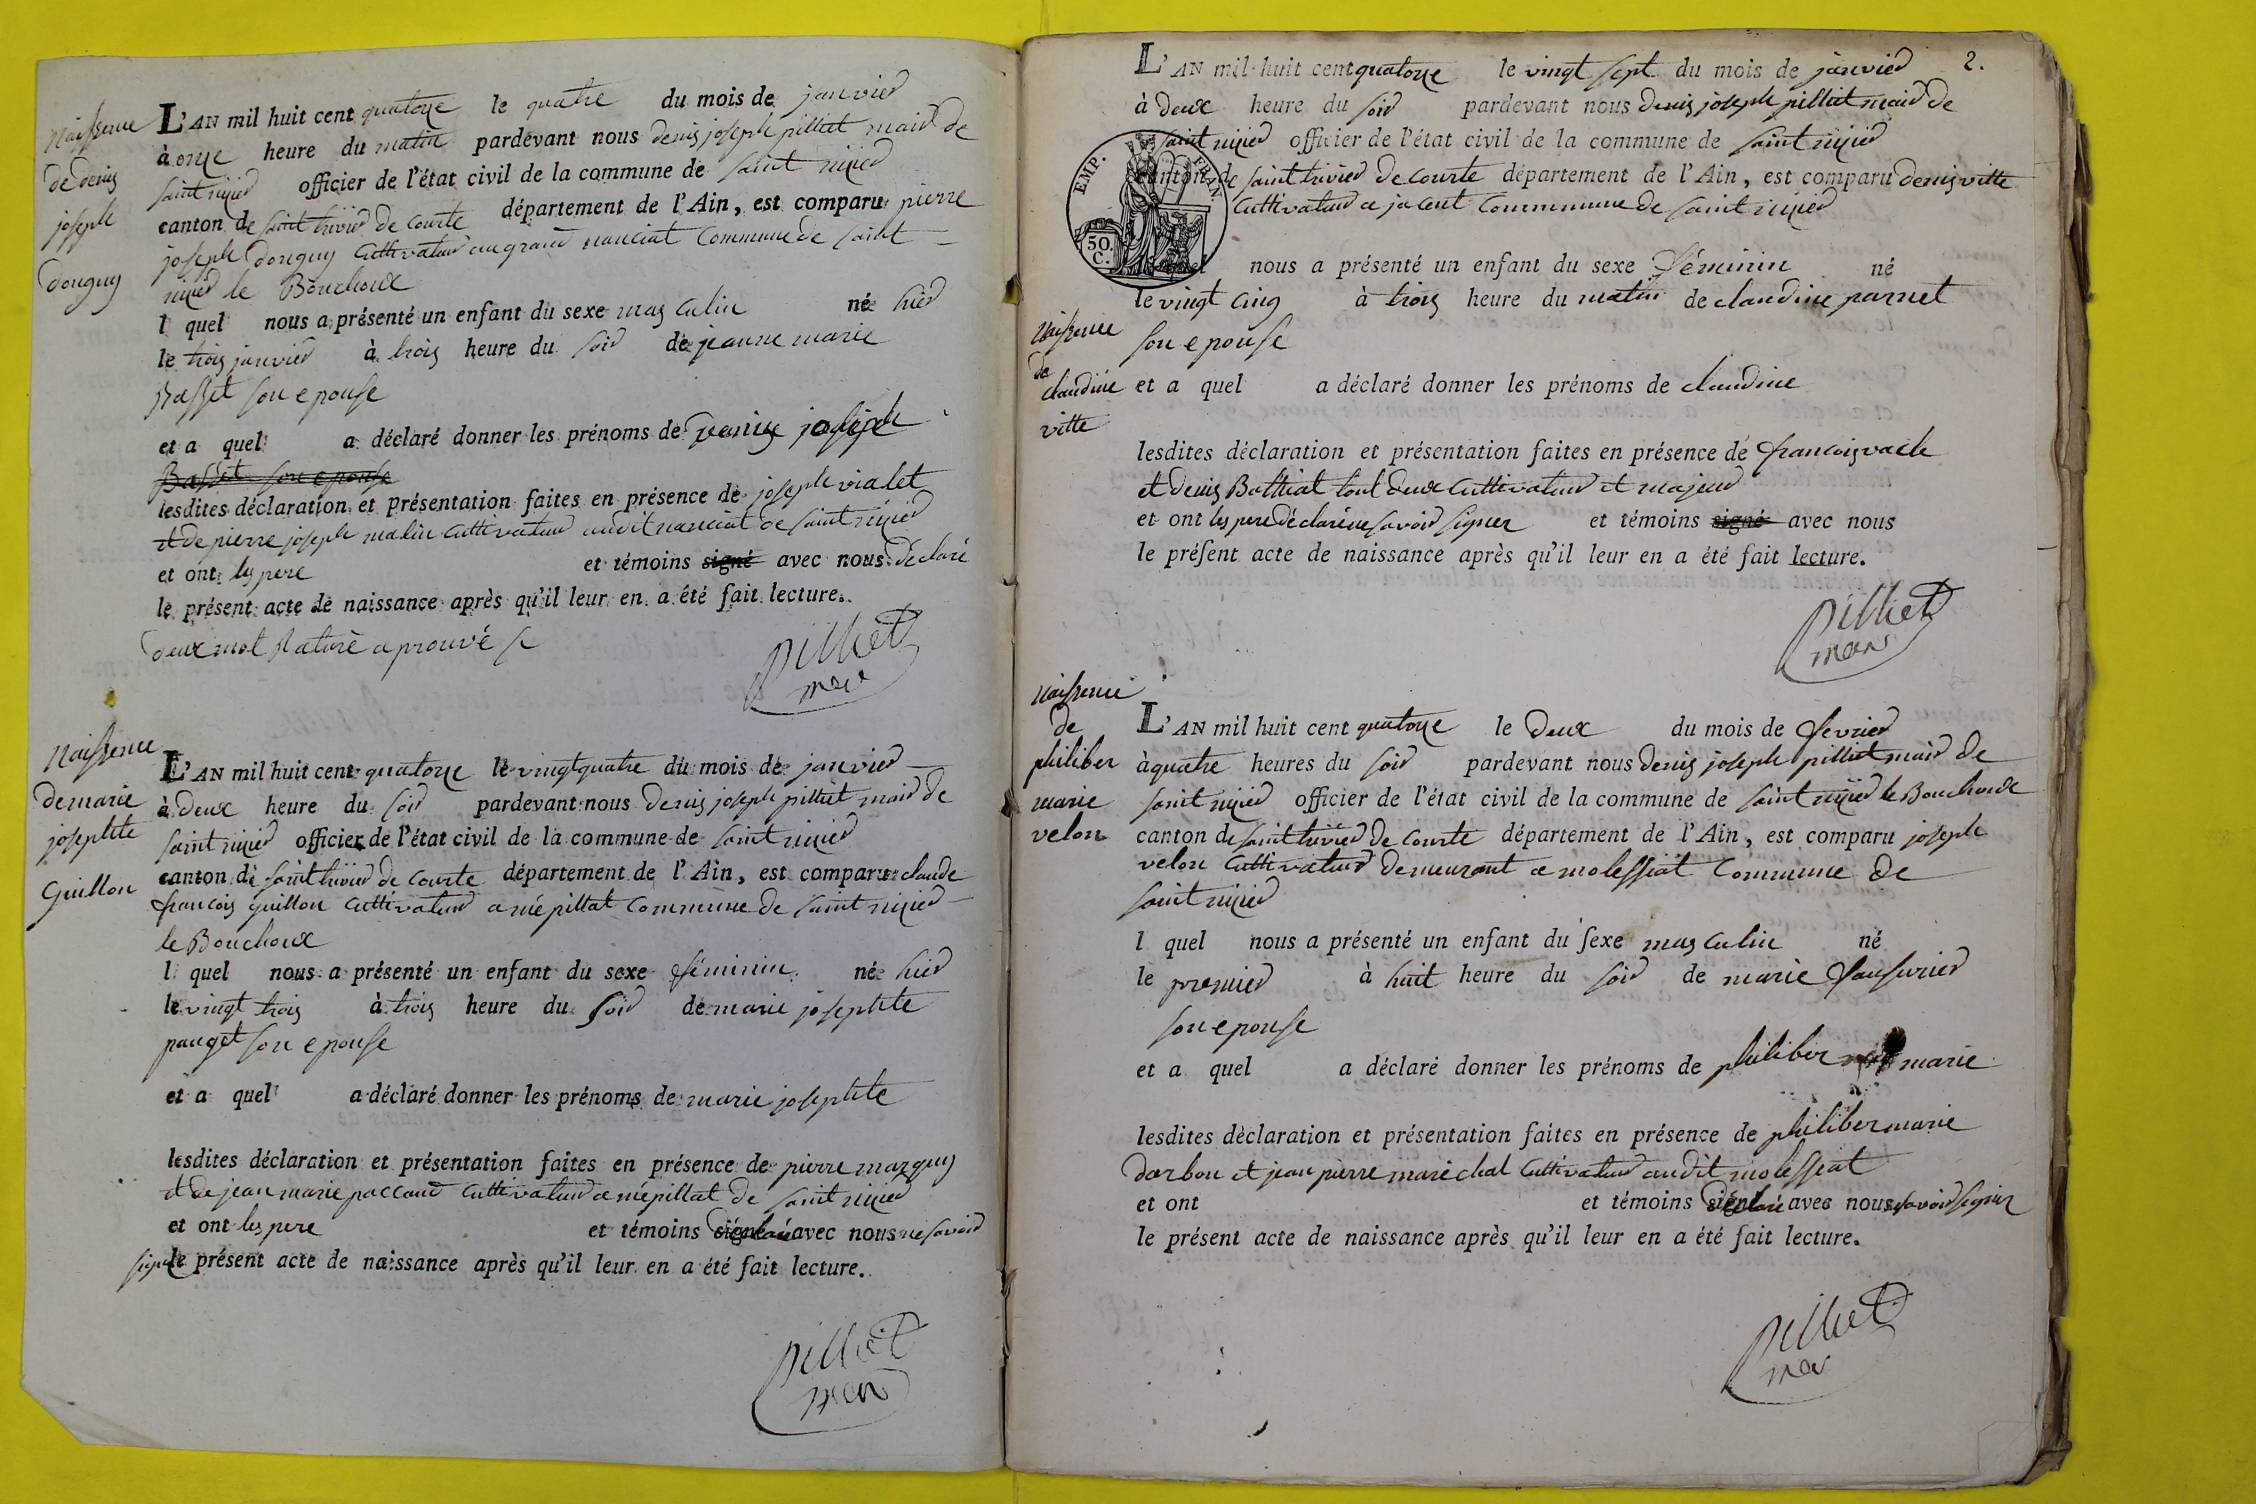 Naissence
de denis
joseph
donguy
L'AN mil huit cent quatorze le quatre du mois de janvier
à onze heure du matin pardevant nous denis joseph pilliat maire de
saint nizier officier de l'état civil de la commune de saint nizier
canton de saint trivier de courte département de l'Ain, est comparu pierre
joseph donguy cultivateur au grand nanciat commune de saint
nizier le Bouchoux
l quel nous a présenté un enfant du sexe masculin né hier
le trois janvier à trois heure du soir de jeanne marie
Basset son epouse
et a quel a déclaré donner les prénoms de denis joseph
Basset son epouse
lesdites déclaration et présentation faites en présence de joseph vialet
et de pierre joseph malin cultivateur audit nanciat de saint nizier
et ont les pere et témoins signé avec nous déclaré
le présent acte de naissance après qu'il leur en a été fait lecture.
deux mot Raturé aprouvé
Pilliat
maire
Naissence
de marie
josephte
Guillon
L'AN mil huit cent quatorze le vingt quatre du mois de janvier
à deux heure du soir pardevant nous denis joseph pilliat maire de
saint nizier officier de l'état civil de la commune de saint nizier
canton de saint trivier de courte département de l'Ain, est comparu claude
francois guillon cultivateur a mépillat commune de saint nizier
le Bouchoux
l quel nous a présenté un enfant du sexe féminin né hier
le vingt trois à trois heure du soir de marie josephte
pauget son epouse
et a quel a déclaré donner les prénoms de marie josephte
lesdites déclaration et présentation faites en présence de pierre mazguy
et de jean marie paccaud cultivateur a mépillat de saint nizier
et ont les pere et témoins déclaré avec nous ne savoir
signer le présent acte de naissance après qu'il leur en a été fait lecture.
Pilliat
maire
2.
L'AN mil huit cent quatorze le vingt sept du mois de janvier
à deux heure du soir pardevant nous denis joseph pilliat maire de
saint nizier officier de l'état civil de la commune de saint nizier
canton de saint trivier de courte département de l'Ain, est comparu denis vitte
cultivateur a jacent commune de saint nizier
EMP. FRAN.
50.
C.
lequel nous a présenté un enfant du sexe féminin né
le vingt cinq à trois heure du matin de claudine parnet
son epouse
Naissence
de
claudine
vitte
et a quel a déclaré donner les prénoms de claudine
lesdites déclaration et présentation faites en présence de francois vacle
et denis Bathiat tout deux cultivateur et majeur
et ont les pere déclaré ne savoir signer et témoins signé avec nous
le présent acte de naissance après qu'il leur en a été fait lecture.
Pilliat
maire
Naissence
de
philiber
marie
velon
L'AN mil huit cent quatorze le deux du mois de fevrier
à quatre heures du soir pardevant nous denis joseph pilliat maire de
saint nizier officier de l'état civil de la commune de saint nizier le Bouchoux
canton de saint trivier de courte département de l'Ain, est comparu joseph
velon cultivateur demeurant a molessiat commune de
saint nizier
l quel nous a présenté un enfant du sexe masculin né
le premier à huit heure du soir de marie
son epouse
et a quel a déclaré donner les prénoms de philiber marie
lesdites déclaration et présentation faites en présence de philiber marie
darbon et jean pierre maréchal cultivateur audit molessiat
et ont et témoins déclaré avec nous savoir signer
le présent acte de naissance après qu'il leur en a été fait lecture.
Pilliat
maire